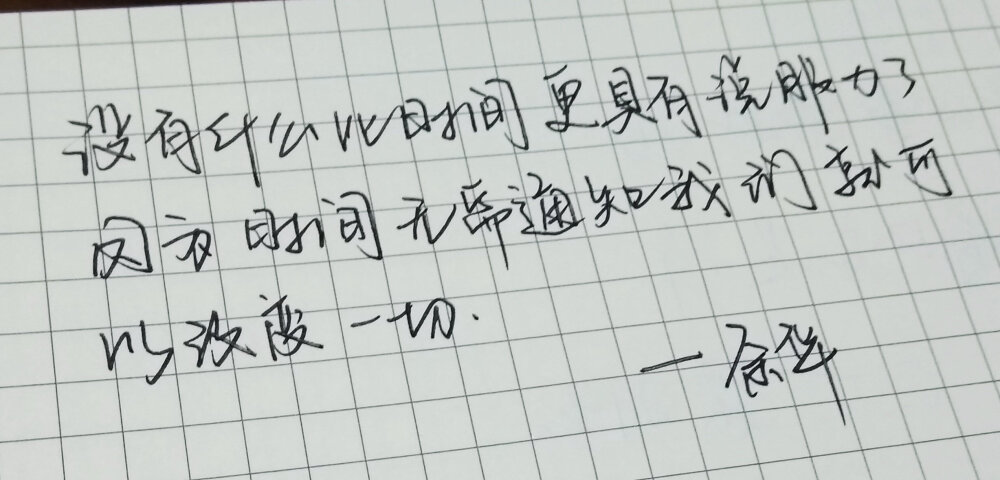 没有什么比时间更具有说服力了
因为时间无需通知我们就可
以改变一切.
—余华